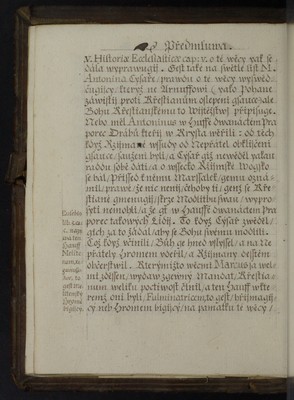 Předmluwa.
v. Historiæ Ecclesiasticæ cap: v. o té wěcy yak se
dála wyprawugíj. Gest také na swětle list M.
Antonína Cysaře / prawdu o té wěcy wyswěd-
čugijcý / kterýž ne Arnuffowi / yako Pohané
záwistij proti Křestianům oslepeni gsauce, ale
Bohu Křestianskému to Wijtězstwj připisuge.
Nebo měl Antoninus w Hauffě dwanáctém Pra-
porec Drábů kteřij w Krysta wěřili: od těch
když Rzijmané wssudy od Nepřátel obklíčeni
gsauce / sauženi byli / a Cysař giž newěděl yakau
radau sobě dáti / a o wssecko Rijmské Wogsko
se bál / Přissed k němu Marssalek / gemu ozná-
mil / prawě / že nic nenij / čehoby ti / genž se Kře-
stiané gmenugij / skrze Modlitbu swau / wypro-
syti nemohli / a že gest w Hauffě dwanáctém Pra-
porec takowých Lidij. To když Cysař zwěděl /
gich za to žádal / aby se Bohu swému modlili.
Což když včinili / Bůh ge hned vslyssel / a na Ne-
přátely Hromem vdeřil / a Rzijmany desstěm
občerstwil. Kterýmižto wěcmi Marcus za wel-
mi zděssen / wydaw zgewný Mandát / Křestia-
num weliku poctiwost činil / a ten Hauff w kte-
rémž oni byli / Fulminatricem, to gest / bligma gij-
cy neb Hromem bigijcý / na památku té wěcy /
Eusebius
lib. 5. cap.